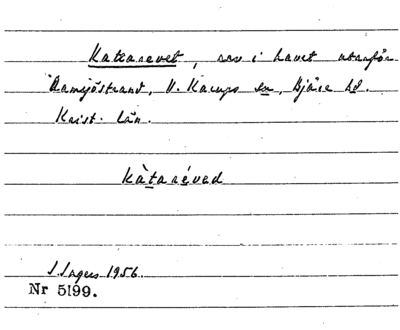 Katarevet, rev i havet utanför
Ramsjöstrand, V. Karups sn, Bjäre hd.
Krist. län.
Kàtaréved
I. Ingers 1956.
Nr 5199.